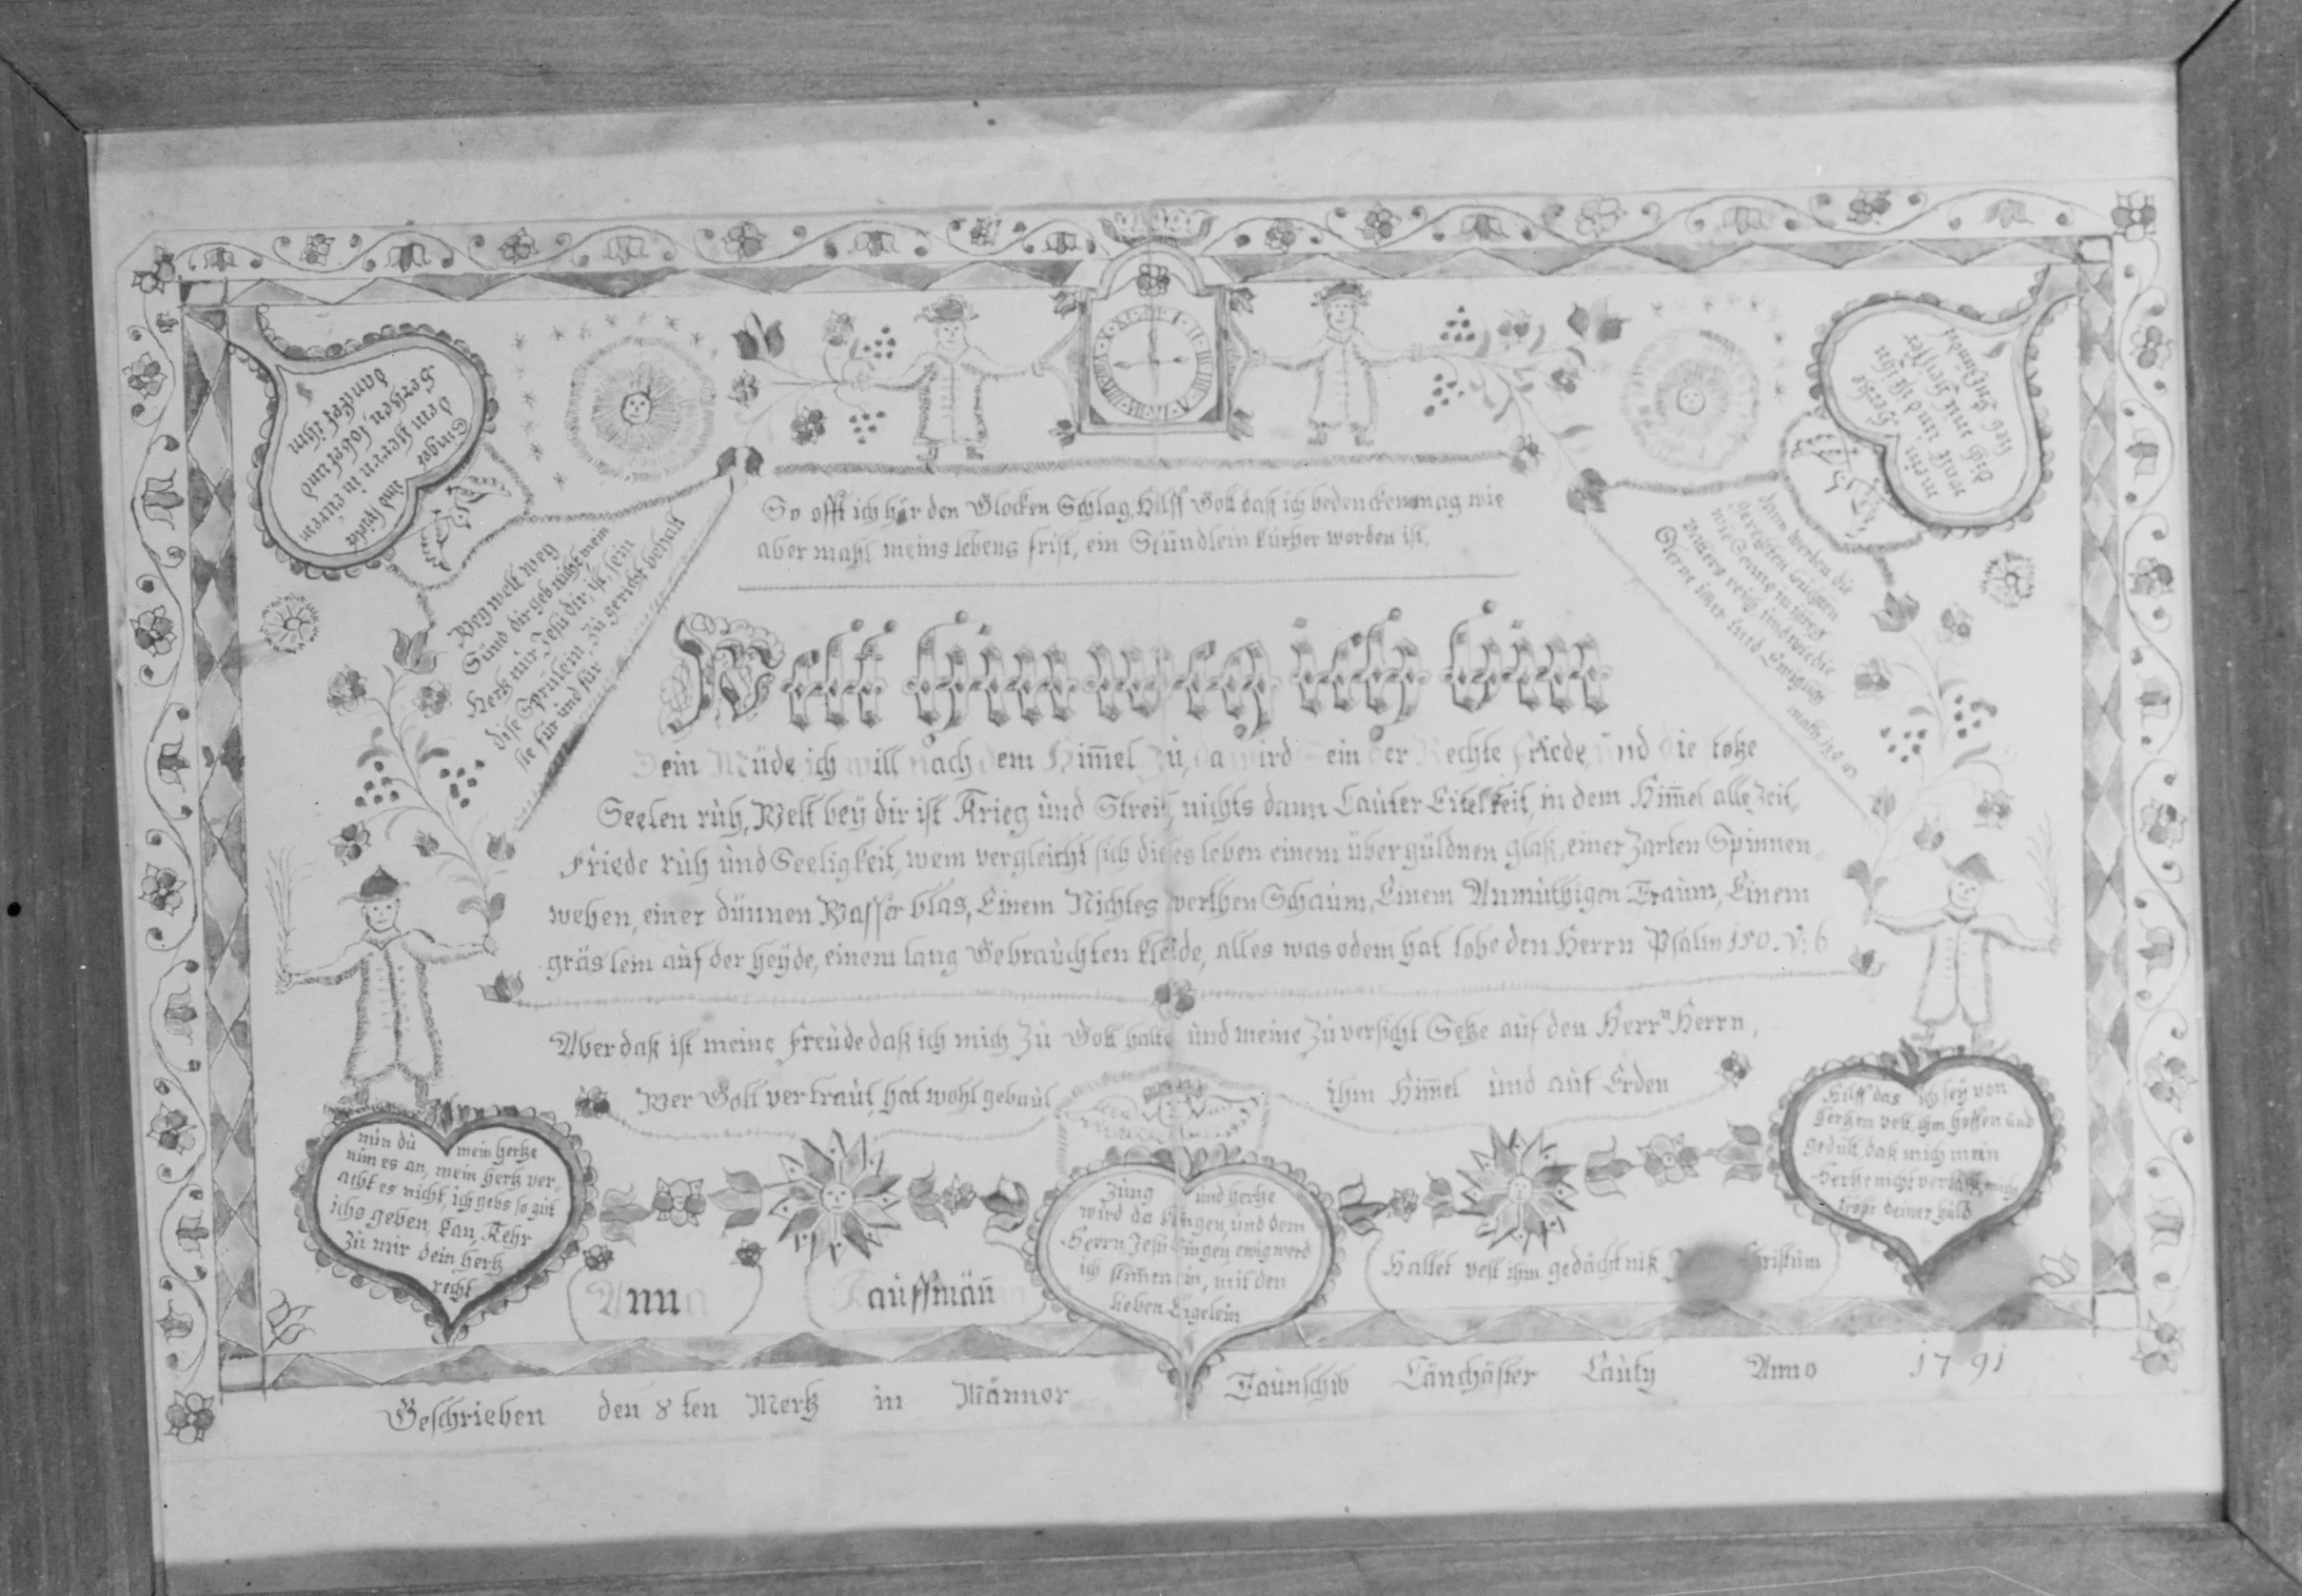 Singet und spielet
dem Herrn in eürem
Hertzen, lobet und
dancket ihm
So offt ich hör den Glocken Schlag, Hilff Gott daß ich bedencken mag wie
aber mahl meins lebens frist, ein Stündlein kürtzer worden ist,
Weg welt weg
Sünd dir geb nicht mein
Hertz nür Jesü dir, ist, sein
dise Sprüilein, Zü gericht behalt
sie für ünd für
dann werden die
gerechten Leüchten
wie Sonne in ihres
Vatters reig ünd wie die
Sterne imer ünd Ewiglich
Welt hinweg ich bin
Dein Müde ich will nach dem Him̄el Zü, da wird Sein der Rechte friede ünd die totze
Seelen rüh, Welt beÿ dir ist Krieg ünd Streit, nichts dann Laüter Eitelkeit, in dem Him̄el alle Zeit,
Friede rüh ünd Seeligkeit, wem vergleicht sich dieses leben einem über güldnen glaß, einer Zarten Spinnen
weben, einer dünnen Wasser blas, Einem Nichtes werthen Schaüm, Einem Anmüthigen Traüm, Einem
gräs lein aüf der heÿde, einem lang Gebraüchten kleide, alles was odem hat lobe den Herrn Psalm 150. V: 6
Aber daß ist meine freüde daß ich mich Zü Gott halte ünd meine Zü versicht Setze aüf den Herrⁿ Herrn,
Wer Gott vertraüt, hat wohl gebaüt
ihm Him̄el ünd aüf Erden
nün dü mein hertze
nim es an, mein hertz ver,
acht es nicht, ich gebs so güt
ichs geben, kan, Kehr
Zü mir dein hertz
recht
Züng ünd hertze
wird da klingen, ünd dem
Herrn Jesü Singen ewig werd
ich stim̄en in, mit den
lieben Eigelein
Hilff das ich seÿ von
hertzen vest, ihm hoffen ünd
gedült, daß mich mein
Hertze nicht verlaßt, mich
tröste deiner hüld
Anna Kaüffmän̄
Haltet vest ihm gedächtniß Christüm
Geschrieben den 8 ten Mertz in Männor Taünschib Länchäster Caüty Anno 1791